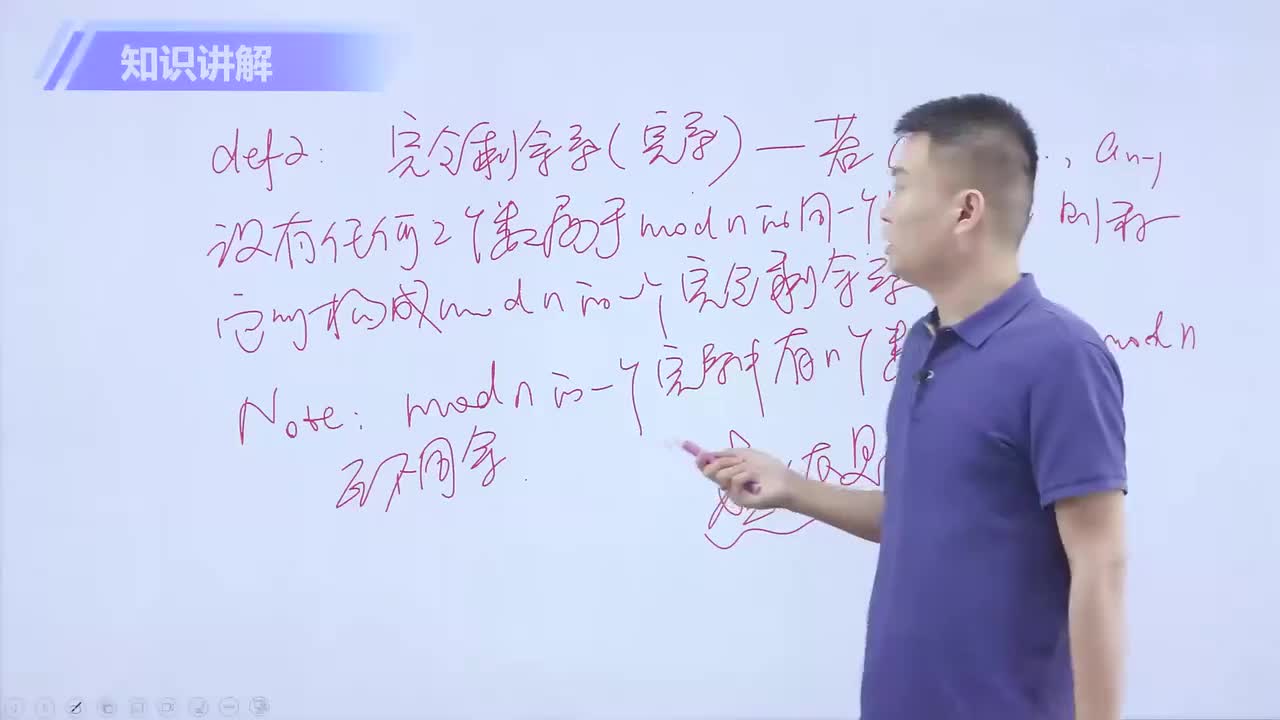 知识讲解
def2: 完全剩余系(完系)—若 ., an-1
没有任何2个数属于mod n的同一个 则称
它们构成mod n的一个完全剩余系
Note: mod n的一个完系中有n个数 mod n
互不同余.